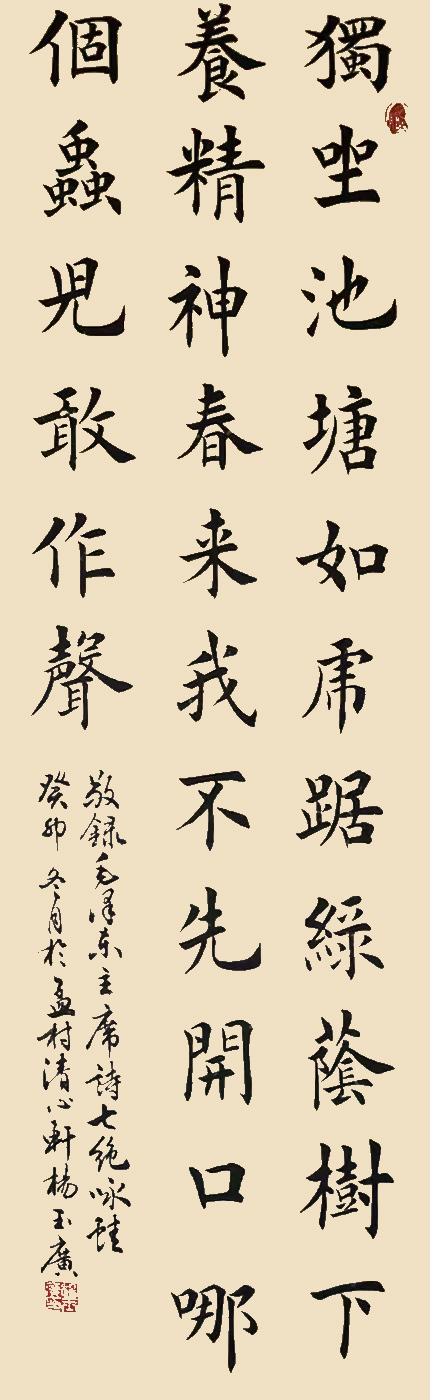 獨坐池塘如虎踞綠蔭樹下
養精神春来我不先開口哪
個蟲兒敢作聲
敬録毛泽东主席詩七绝咏蛙
癸卯冬月於孟村清心軒楊玉廣